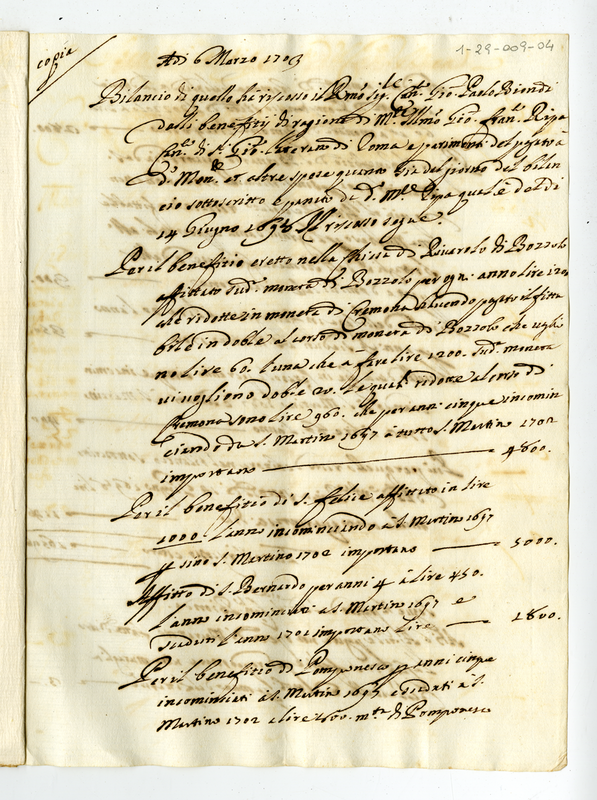 1-29-009-04
copia
Adi 6 Marzo 1703
Bilancio di quello hà riscosso il Rmo Sigr Canco Gio. Paolo Biondi
dalli benefitij di ragione di Mre Illmo Gio. Franco Ripa
Canco di S. Gio. Laterano di Roma e parimenti del pagato à
do Monre et altre spese quanto sia del giorno del bilan
cio sottoscritto e da do Mre Ripa qual è del dì
14 Giugno 1698 Il riscosso segue.
Per il benefitio eretto nella Chiesa di Rivarolo di Bozzolo
affittato sud. moneta di Bozzolo per ogni anno lire 1200
ridotte in moneta di Cremona havendo pagato il fitta
bile in doble al corso di moneta di Bozzolo che vagli
no lire 60. l'una che à fare lire 1200. sud. moneta
vi vogliono doble 20. le quali ridotte al corso di
Cremona sono lire 960. che per anni cinque incomin
ciando da S. Martino 1697 à tutto S. Martino 1702
importano 4800.
Per il benefitio di S. Felice affittato in lire
1000. l'anno incominciando à S. Martino 1697
sino S. Martino 1702 importano 5000.
Affitto di S. Bernardo per anni 4 à lire 450.
l'anno incominciati à S. Martino 1697 e
scaduti l'anno 1701 importano lire 1800.
Per il benefitio di Pomponesco p anni cinque
incominciati à S. Martino 1697 e scaduti à S.
Martino 1702 a lire 1600. mta di Pomponesco